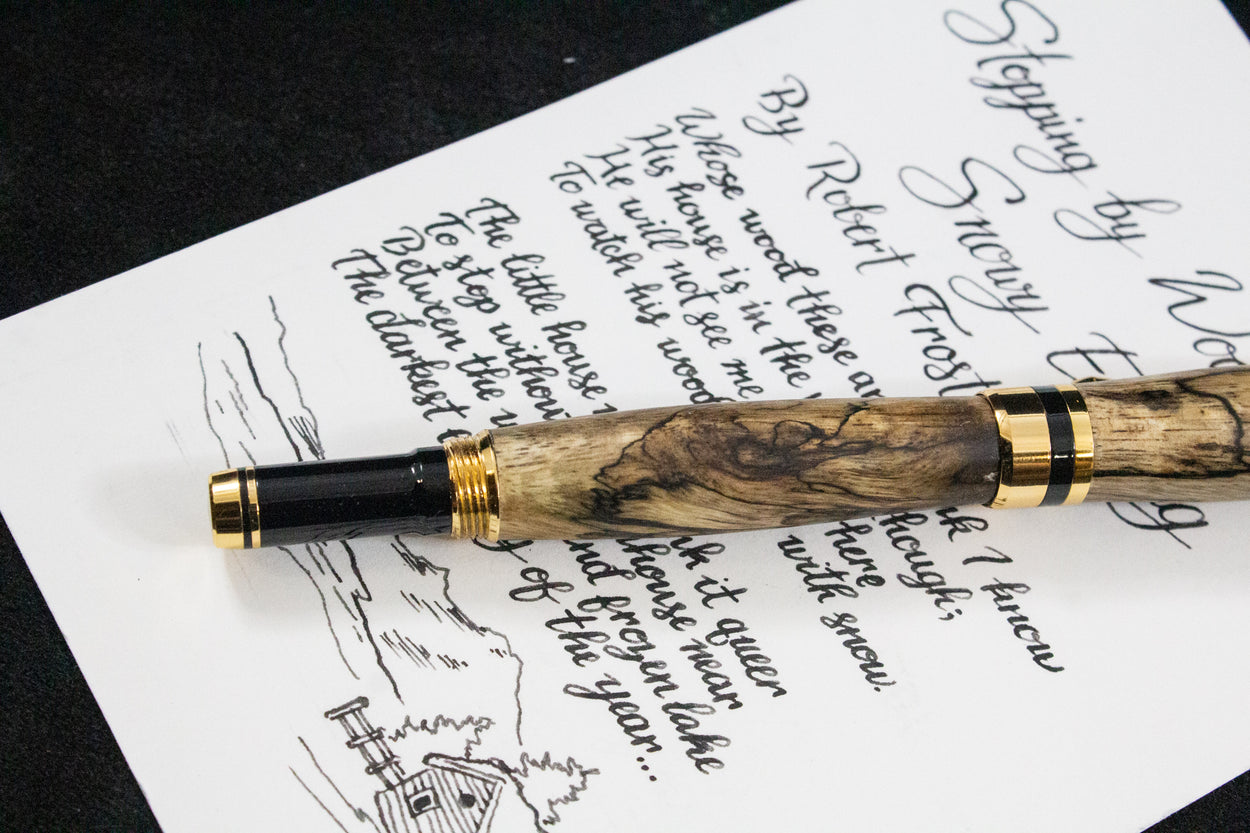 Stopping by
Snowy
By Robert Frost
Whose wood these I know
His house is in the
He will not see me here
To watch his with snow.
The little house it queer
To stop near
Between the frozen lake
The darkest of the year...